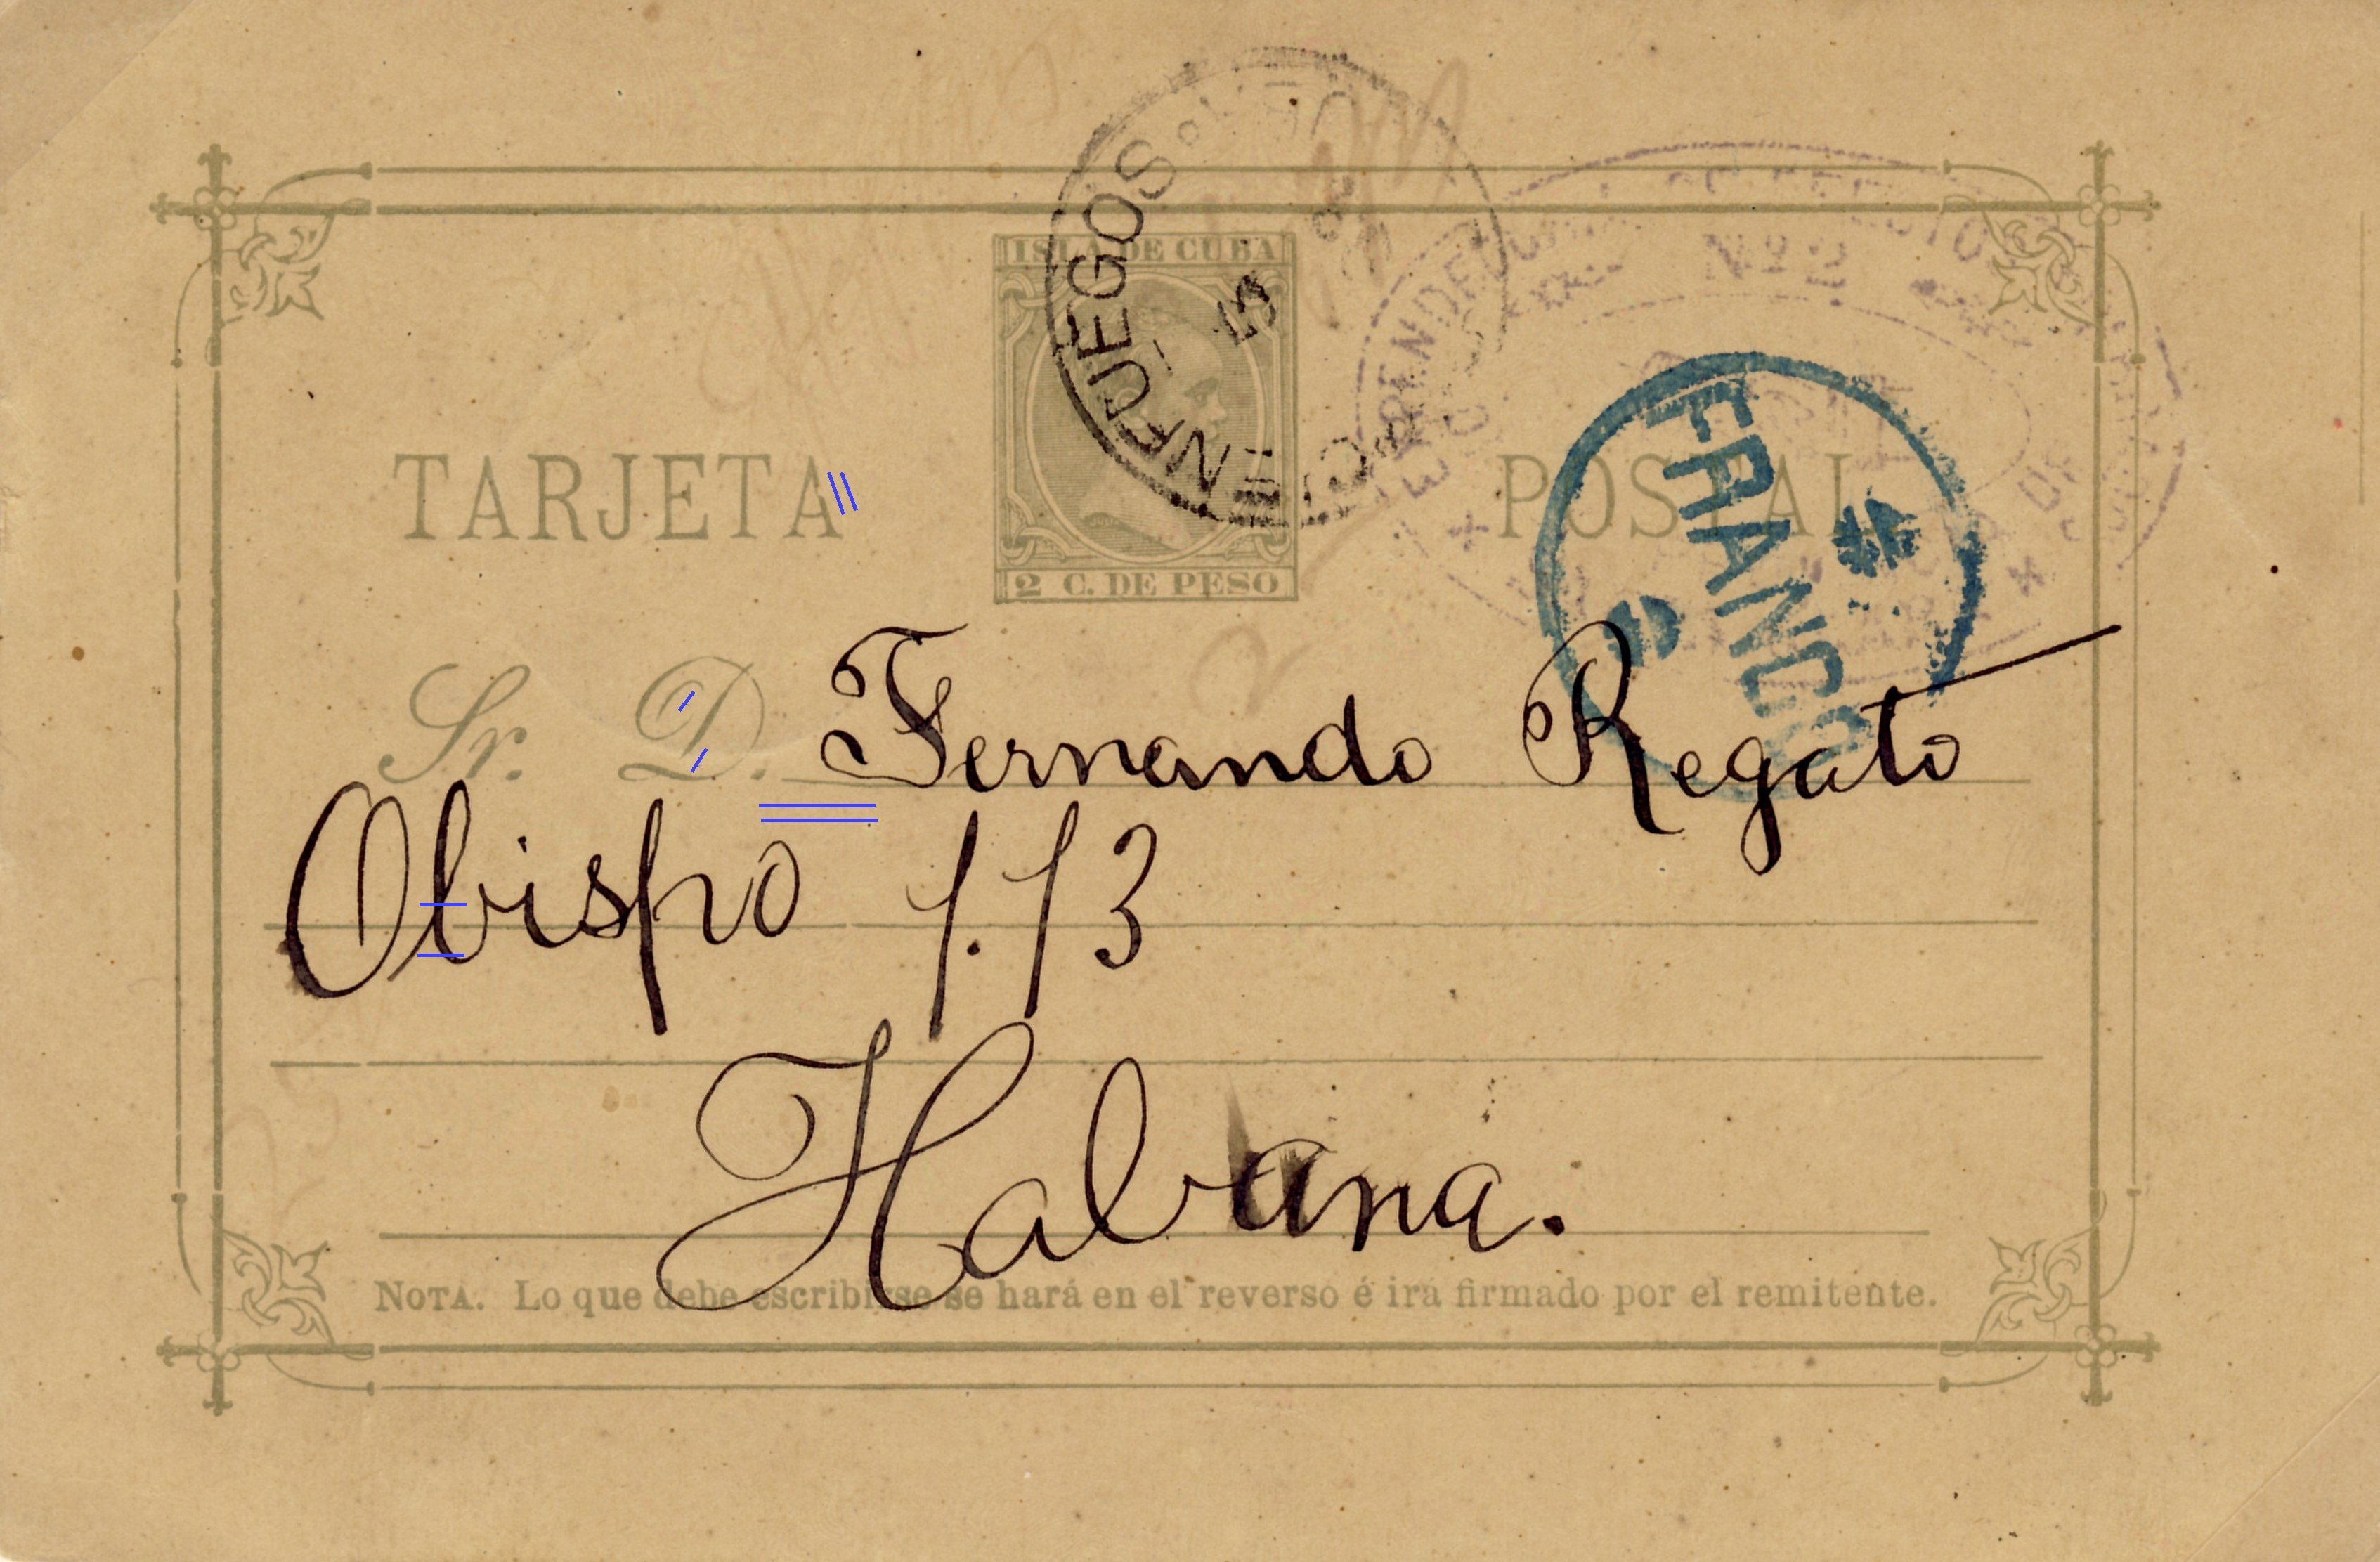 ISLA DE CUBA
CIENFUEGOS
Nº 2
TARJETA POSTAL
FRANCO
2 C. DE PESO
Sr. D. Fernando Regato
Obispo 113
Habana.
NOTA. Lo que debe escribirse se hará en el reverso é irá firmado por el remitente.